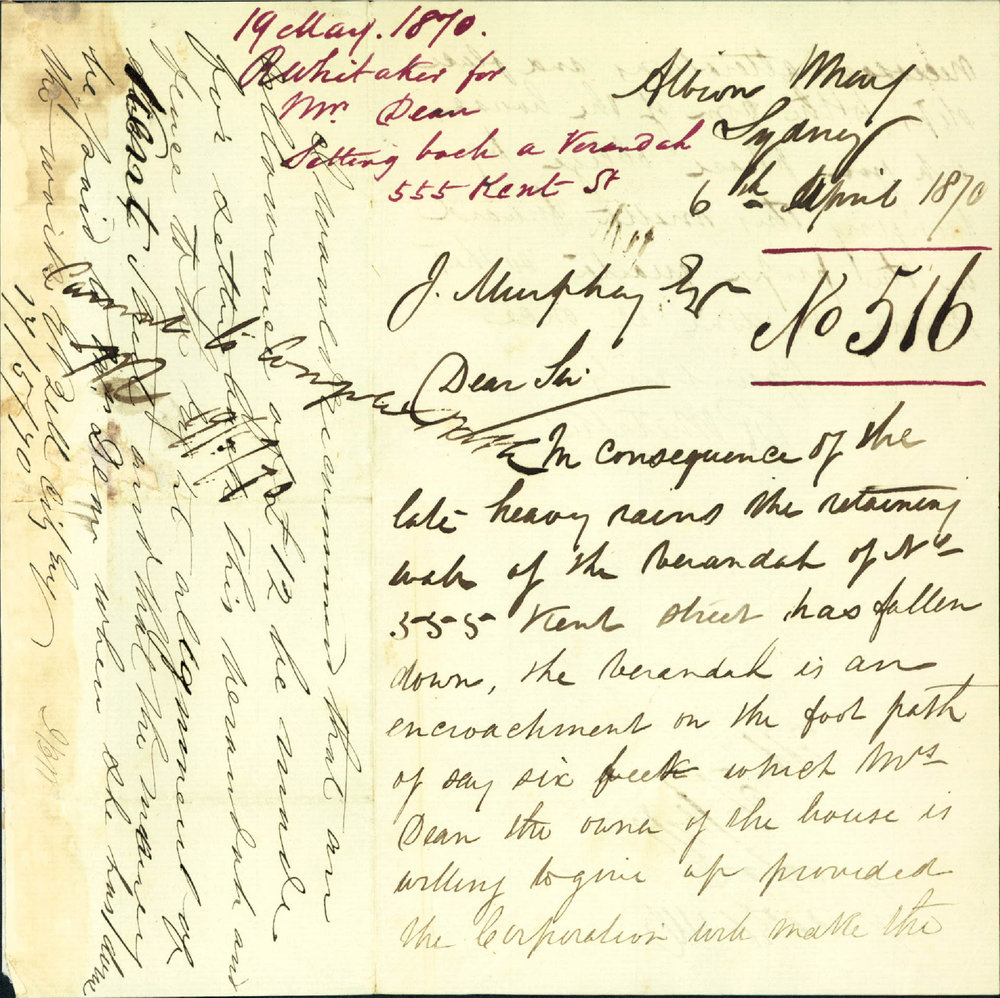 19 May. 1870.
R Whitaker for
Mrs Dean
Setting back a Verandah
555 Kent St
Albion Wharf
Sydney
6th April 1870
No 516
J. Murphay Esqr
Dear Sir
In consequence of the
late heavy rains the retaining
wall of the verandah of No
555 Kent street has fallen
down, the verandah is an
encroachment on the foot path
of say six feet which Mrs
Dean the owner of the house is
willing to give up provided
the Corporation will make the
I would recommend that an
allowance of £12 be made
for setting back this verandah and
fence to the alignment of
Kent Street and that the money
be paid Mrs Dean when she has done
the work
City Sur
12/5/70